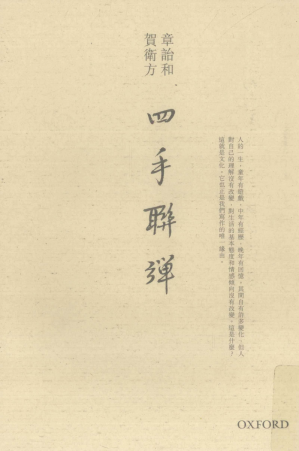 章詒和
賀衛方
四手聯彈
人的一生，童年有遊戲，中年有經歷，晚年有回憶，其間自有許多變化。但人
對自己的理解沒有改變，對生活的基本態度和情感傾向沒有改變，這是什麼？
這就是文化，它也正是我們寫作的唯一緣由。
OXFORD